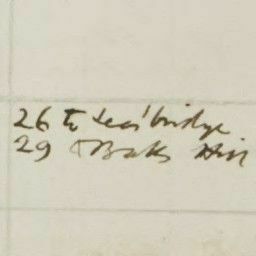 26 to Leabridge
29 & Balls Hill